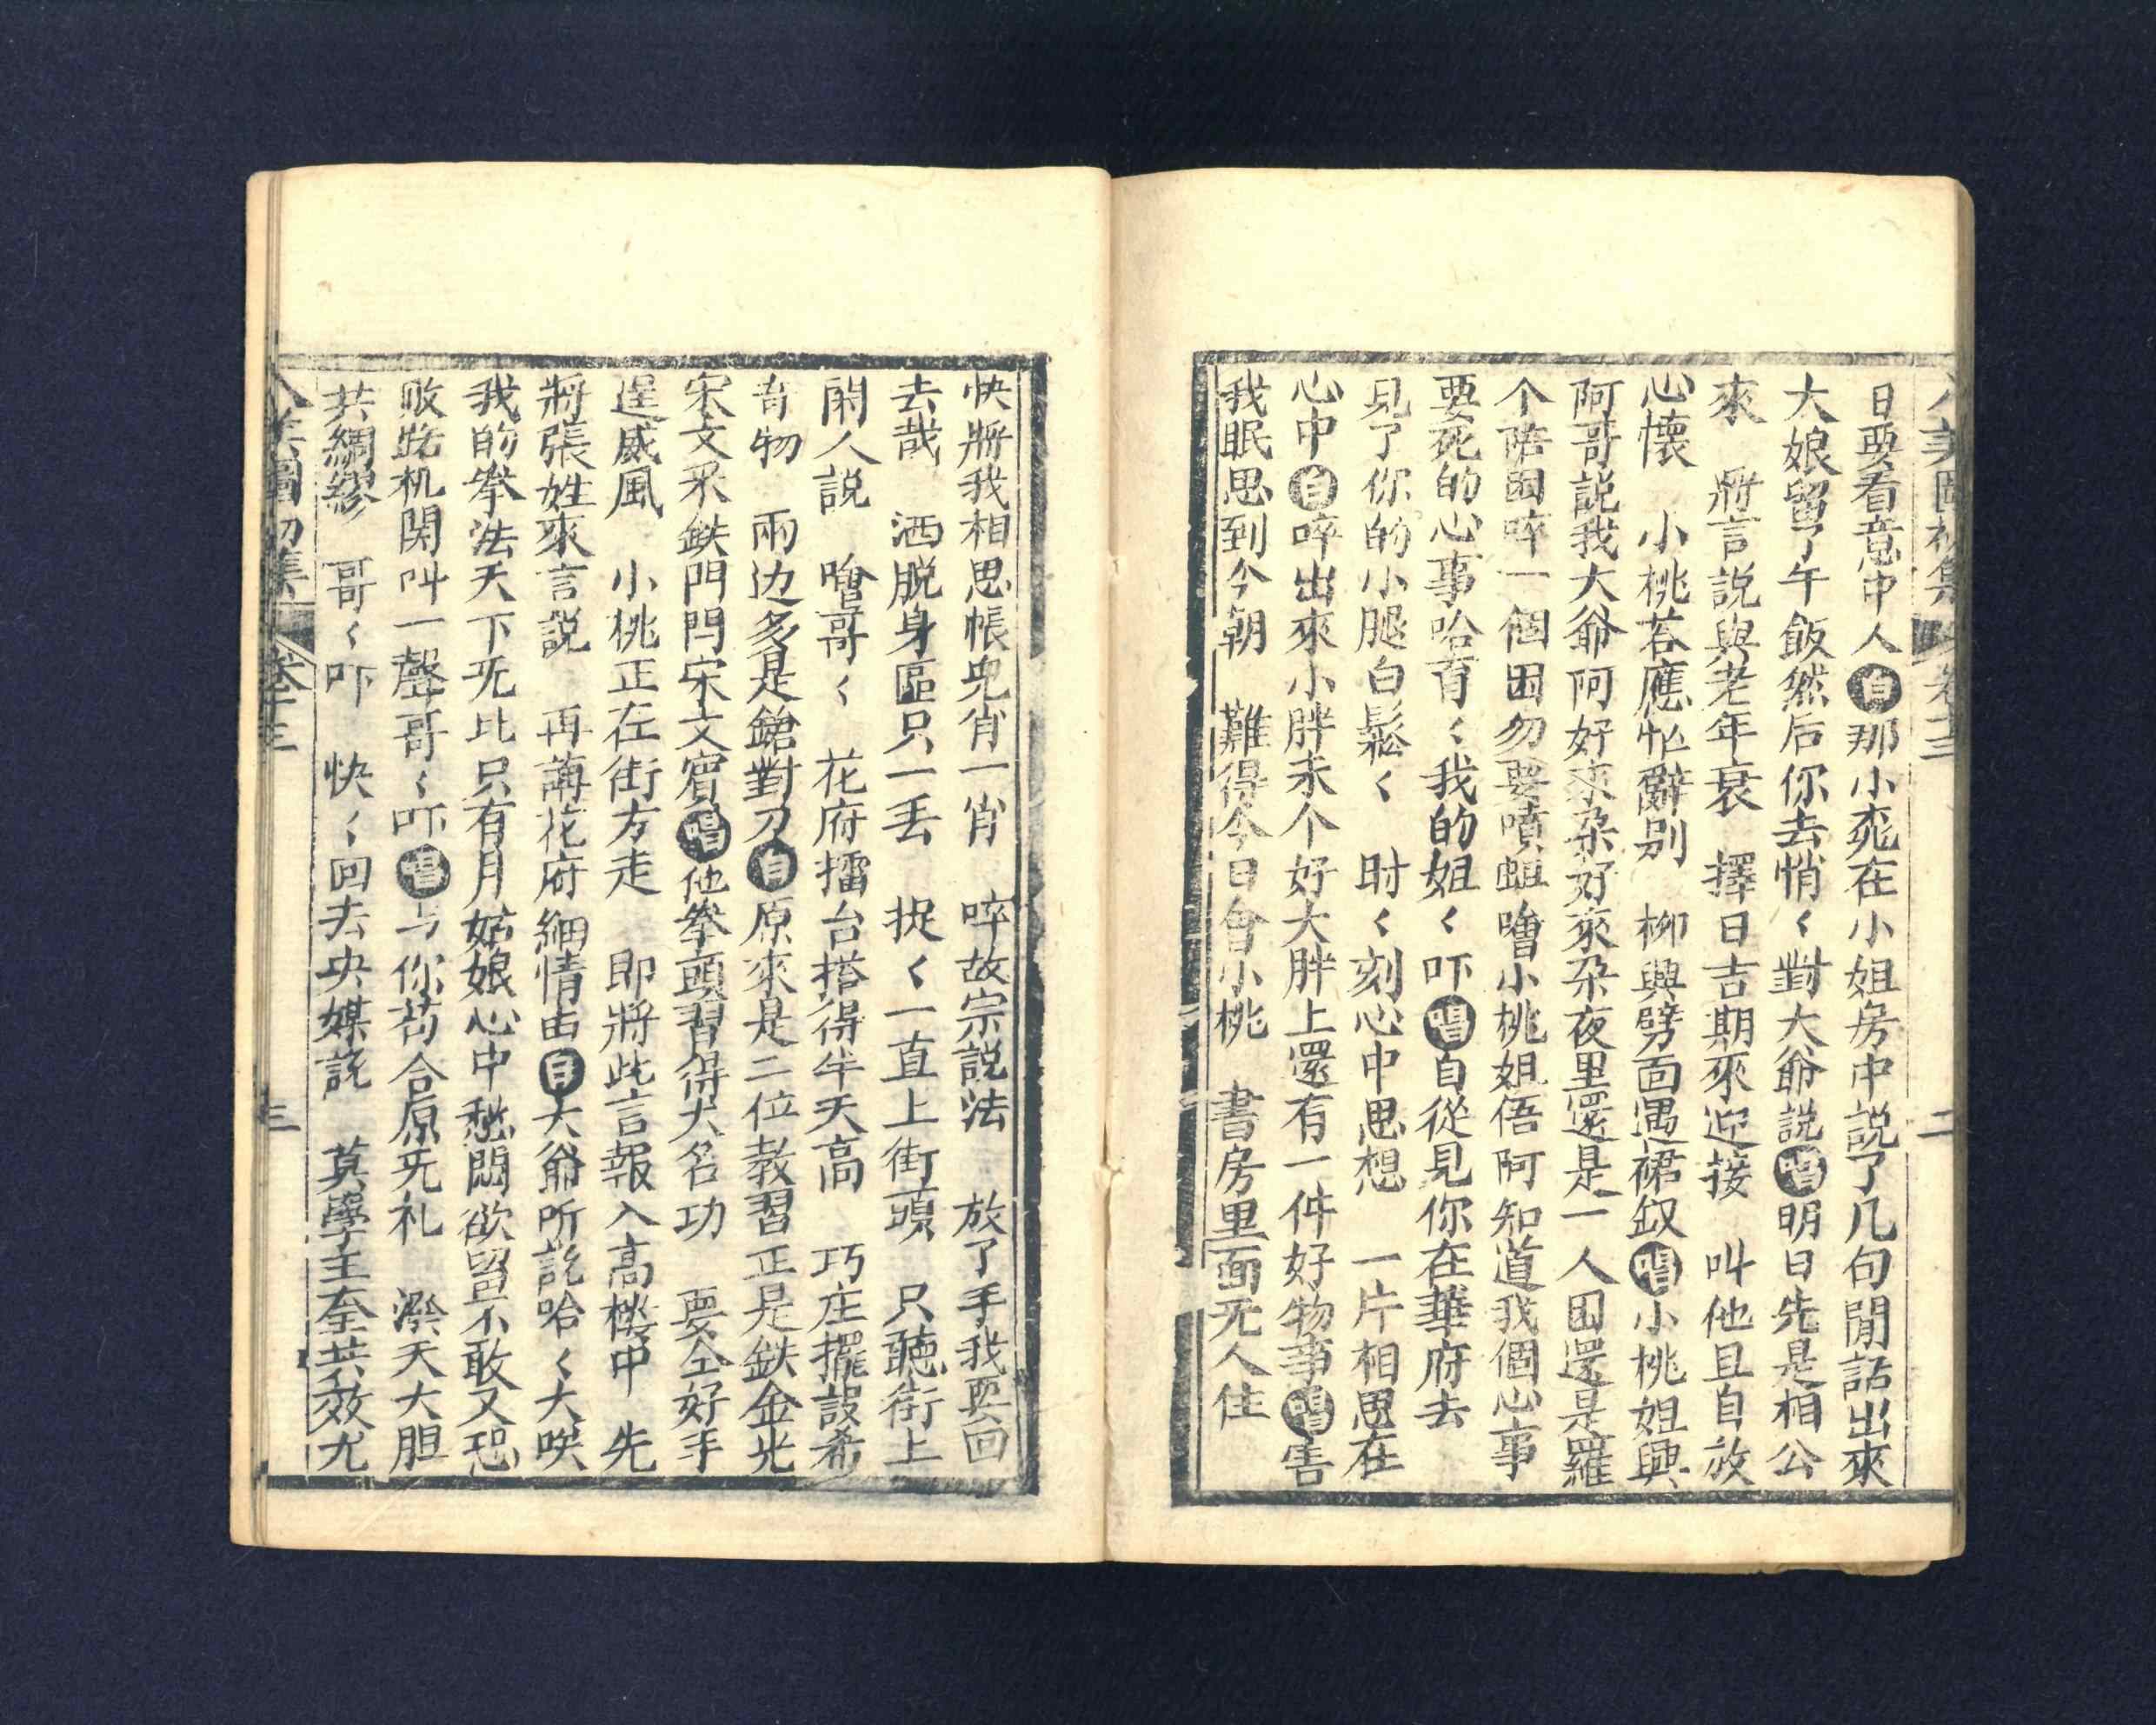 八美圖初集 卷十三 二
日要看意中人白那小兆在小姐房中説了几句閒話出來
大娘留了午飯然后你去悄〱對大爺説唱明日先是相公
來 將言説與老年衰 擇日吉期來迎接 叫他且自放
心懷 小桃荅應忙辭别 柳興劈面遇裙釵唱小桃姐興
阿哥説我大爺阿好來朶好來朶夜里還是一人困還是羅
个陪困啐一個困勿要噴蛆噲小桃姐俉阿知道我個心事
要死的心事哈育〱我的姐〱吓唱自從見你在華府去
見了你的小腿白鬆〱 时〱刻心中思想 一片相思在
心中白啐出來小胖未个好大胖上還有一件好物事唱害
我眠思到今朝 難得今日會小桃 書房里面无人住
快將我相思帳兜肖一肖 啐故宗説法 放了手我要回
去哉 洒脱身區只一丢 捉〱一直上街頭 只聽街上
閑人説 噲哥〱 花府擂台搭得半天高 巧庄擺設希
竒物 兩边多是鎗對刀白原來是二位教習正是鉄金光
宋文采鉄門閂宋文賓唱他拳頭習得大名功 要全好手
逞威風 小桃正在街方走 即將此言報入高楼中 先
將張姓來言説 再講花府細情由白大爺所説哈〱大咲
我的拳法天下旡比只有月姑娘心中愁悶欲畱不敢又恐
敗露机関呌一聲哥〱吓唱与你苟合原旡礼 潑天大胆
共綢繆 哥〱吓 快〱回去央媒説 莫學主奎共效尤
八美圖初集 卷十三 三